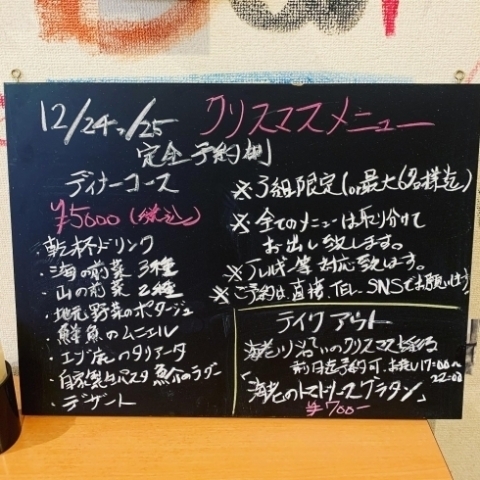 12/24,/25 クリスマスメニュー
完全予約制
ディナーコース
¥5000 (税込)
・乾杯ドリンク
・海の前菜 3種
・山の前菜 2種
・地元野菜のポタージュ
・鮮魚のムニエル
・エゾ鹿のタリアータ
・自家製生パスタ 魚介のラグー
・デザート
※3組限定(or最大6名様迄)
※全てのメニューは取り分けて
お出し致します。
※アレルギー等対応致します。
※ご予約は、直接、TEL、SNSでお願いします
テイクアウト
クリスマス
前日迄予約可、お渡し17:00〜
22:00
「海老のトマトソースグラタン」
¥700-